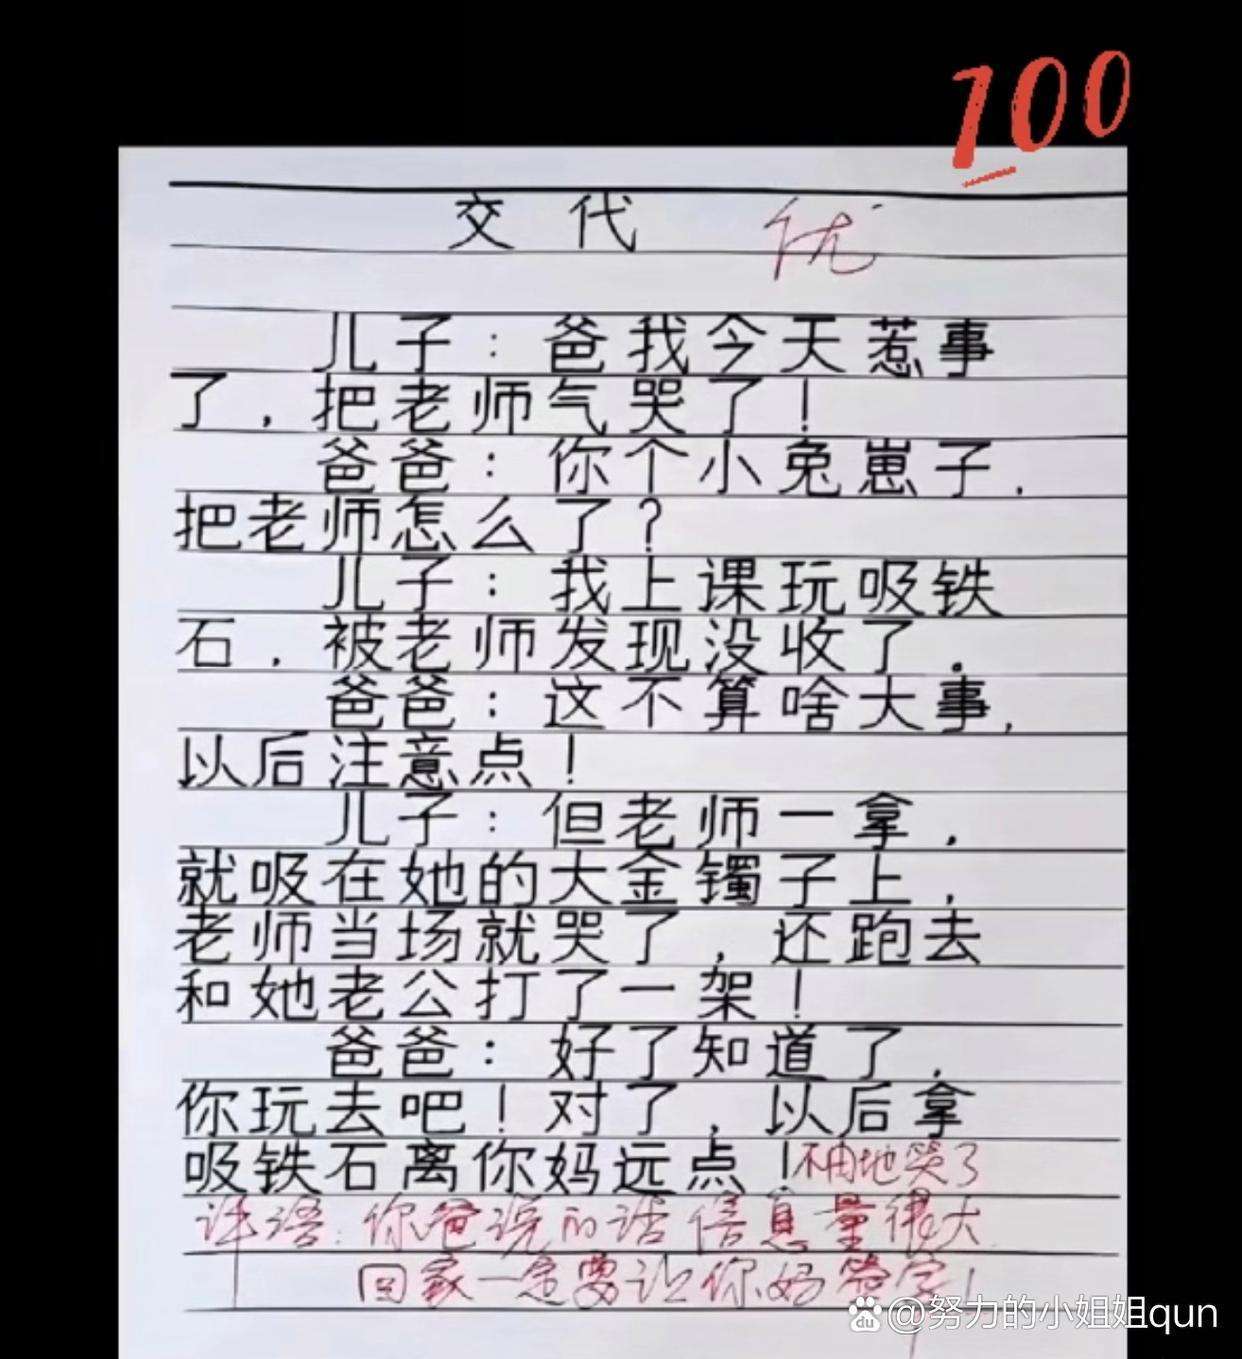 100
交代 优
儿子：爸我今天惹事
了，把老师气哭了！
爸爸：你个小兔崽子，
把老师怎么了？
儿子：我上课玩吸铁
石，被老师发现没收了。
爸爸：这不算啥大事，
以后注意点！
儿子：但老师一拿，
就吸在她的大金镯子上，
老师当场就哭了，还跑去
和她老公打了一架！
爸爸：好了知道了，
你玩去吧！对了，以后拿
吸铁石离你妈远点！哭了
评语：你爸说的话信息量很大
回家一定要让你妈签字！
@努力的小姐姐qun